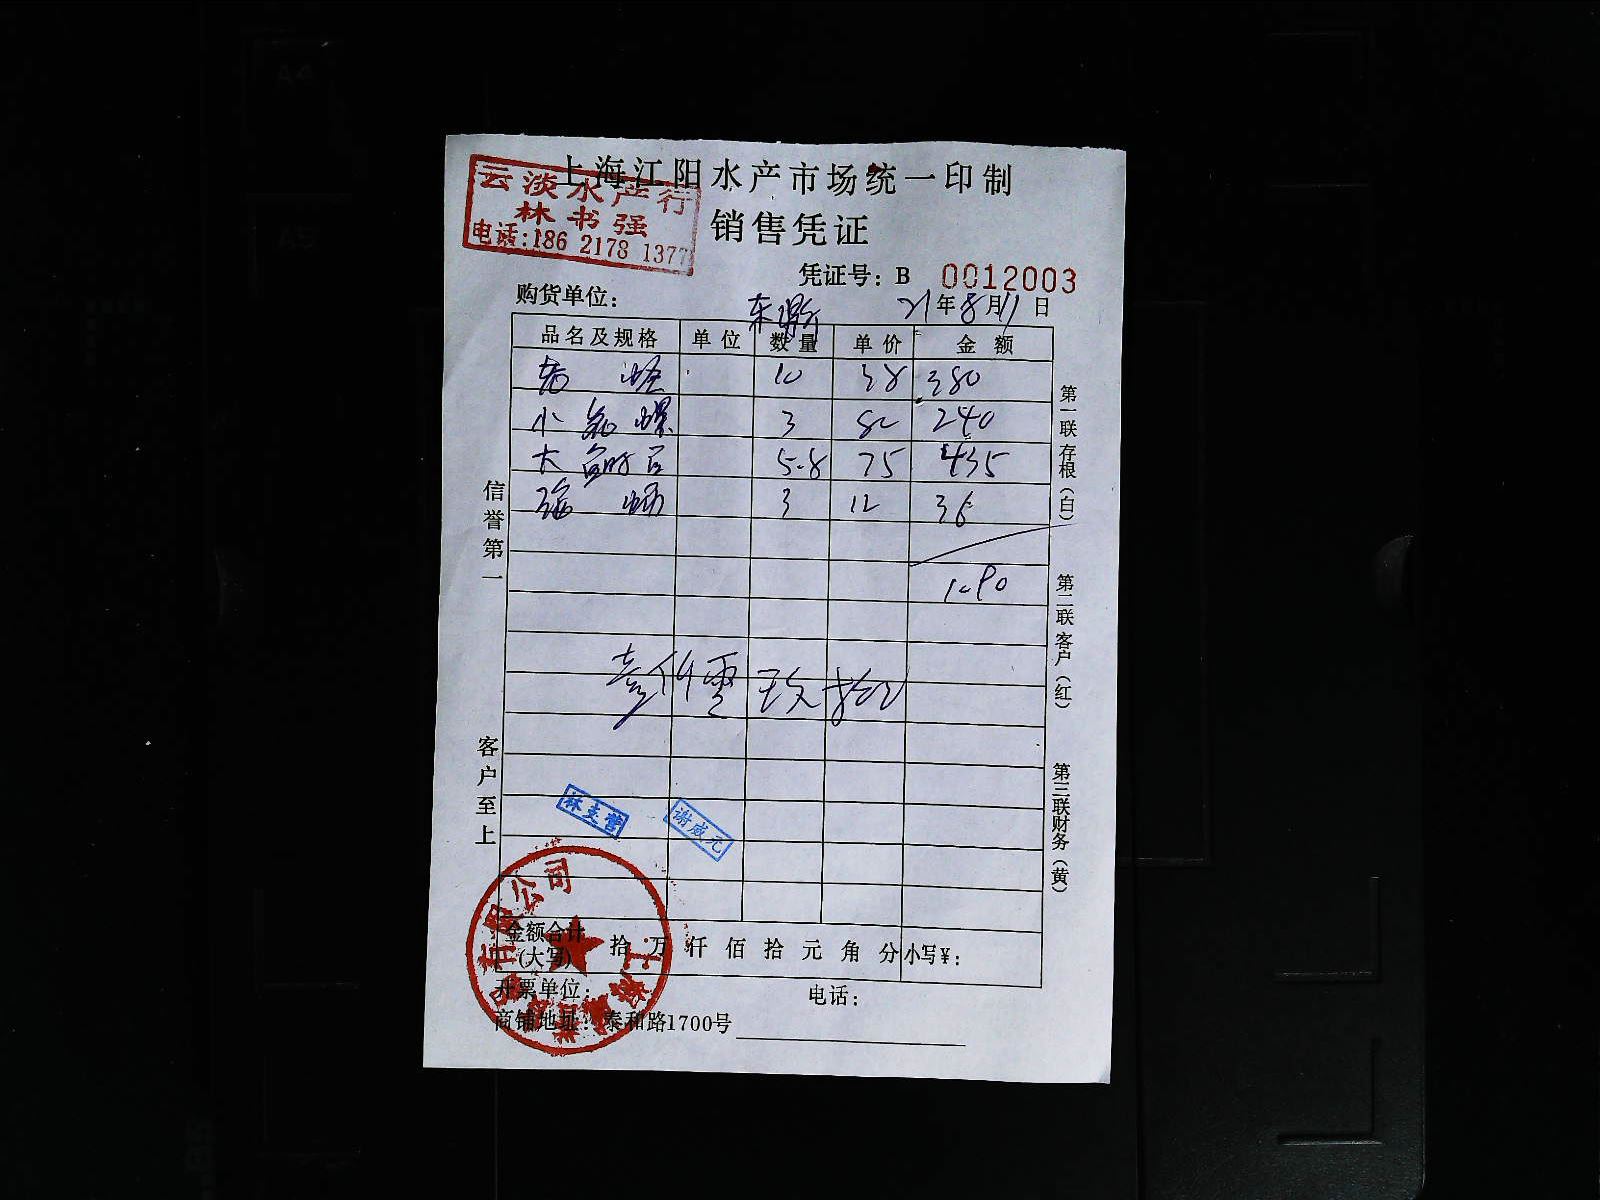 上海江阳水产市场统一印制
云淡水产行
林书强
电话:186 2178 1377
销售凭证
凭证号: B 0012003
购货单位: 21年8月11日
品名及规格 单位 数量 单价 金额
10 38 380
小 螺 3 80 240
大 5.8 75 435
3 12 36
1090
信誉第一
客户至上
第一联存根(白)
第二联客户(红)
第三联财务(黄)
林支营
谢咸元
有限公司
上海
金额合计(大写) 拾 万 仟 佰 拾 元 角 分 小写¥:
开票单位: 电话:
商铺地址: 泰和路1700号